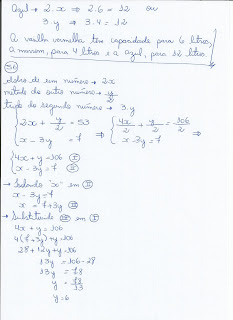 Azul → 2.x ⇒ 2.6 = 12 ou
3.y ⇒ 3.4 = 12
A vasilha vermelha têm capacidade para 6 litros
A marrom, para 4 litros e a azul, para 12 litros.
56
dobro de um número → 2x
metade do outro número → y/2
triplo do segundo número → 3.y
{2x + y/2 = 53 ⇒ {4x/2 + y/2 = 106/2 ⇒
x - 3y = 7 x - 3y = 7
{4x + y = 106 (I)
x - 3y = 7 (II)
→ Isolando "x" em (II)
x - 3y = 7
x = 7 + 3y (III)
→ Substituindo (III) em (I)
4x + y = 106
4(7 + 3y) + y = 106
28 + 12y + y = 106
13y = 106 - 28
13y = 78
y = 78/13
y = 6